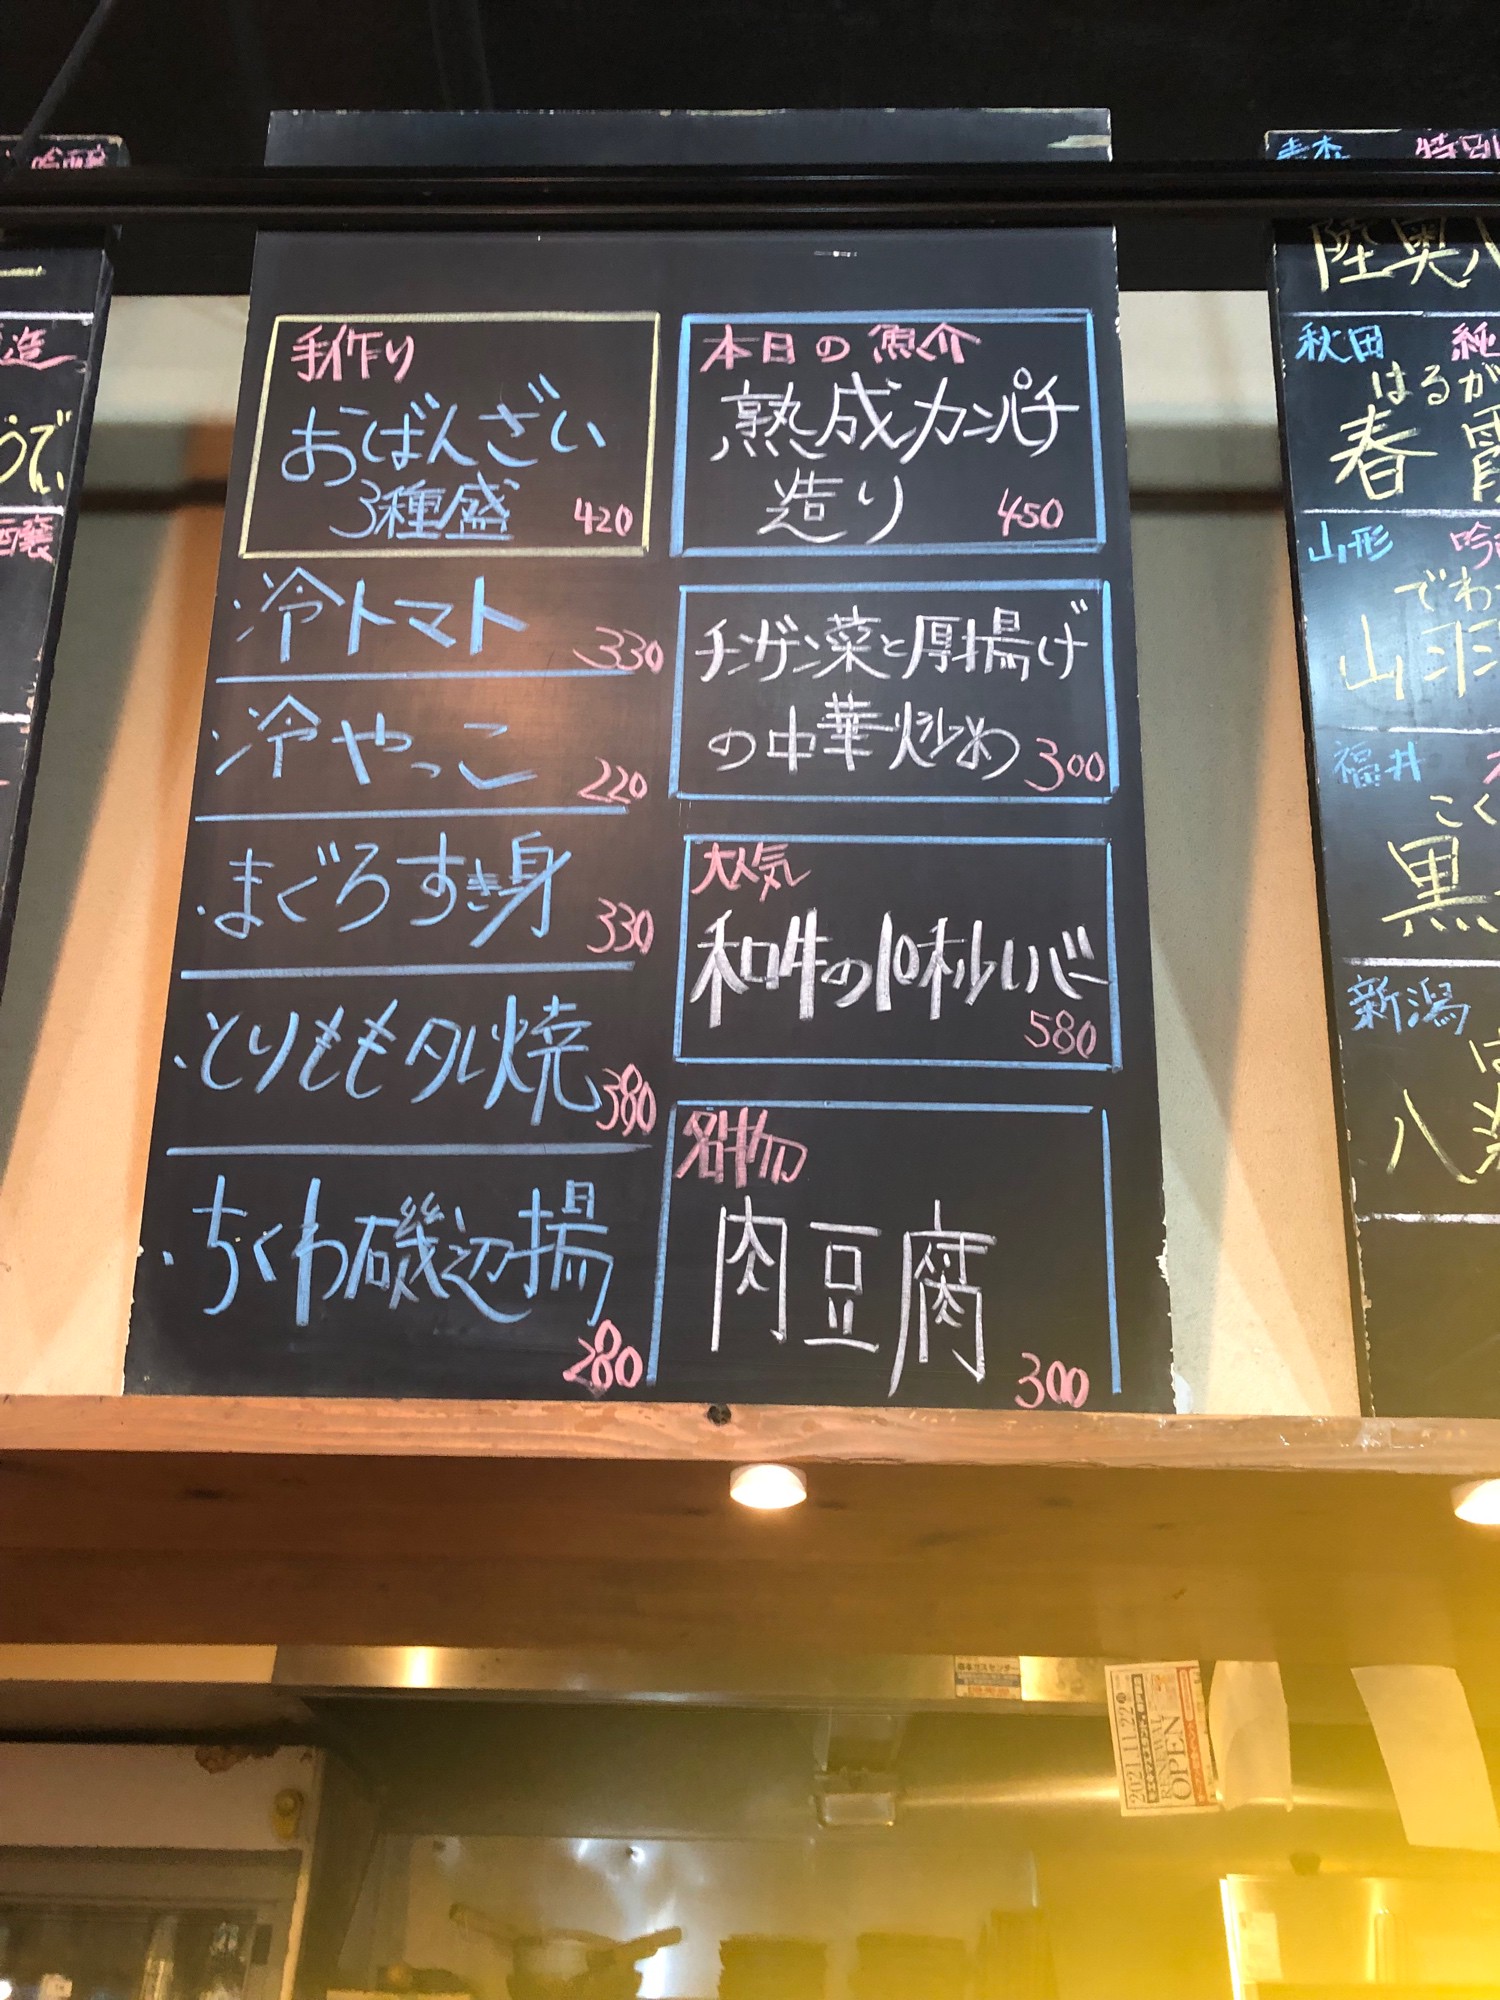 手作り
おばんざい
3種盛 420
・冷トマト 330
・冷やっこ 220
・まぐろすき身 330
・とりももタレ焼 380
・ちくわ磯辺揚 280
本日の魚介
熟成カンパチ
造り 450
チンゲン菜と厚揚げ
の中華炒め 300
大人気
和牛の10秒レバー
580
名物
肉豆腐
300
吟醸
造
うでい
醸
青森 特別
陸奥八
秋田 純
はるが
春霞
山形 吟
でわ
山形
福井
こく
黒
新潟
は
八
2021.11.22
RENEWAL
OPEN